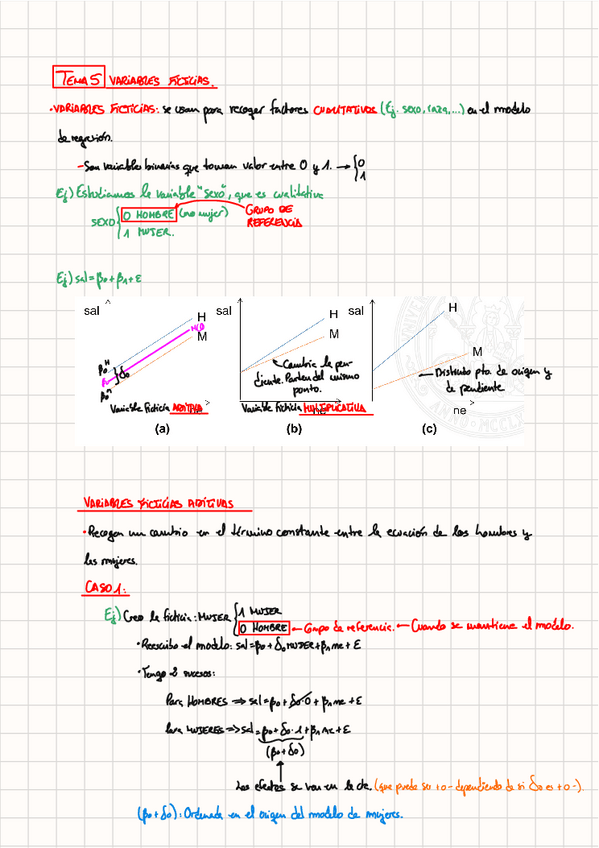 TEMA 5 VARIABLES FICTICIAS.
• VARIABLES FICTICIAS: se usan para recoger factores CUALITATIVOS (Ej. sexo, raza,...) en el modelo
de regresión.
- Son variables binarias que toman valor entre 0 y 1. → { 0
1
Ej) Estudiamos la variable "sexo", que es cualitativa
SEXO { 0 HOMBRE (no mujer) GRUPO DE
REFERENCIA
1 MUJER.
Ej) sal = β0 + β1 + ε
sal H H&M M β0^H β0^M δ0
Variable Ficticia ADITIVA
(a)
sal H M
Cambia la pen-
diente. Parten del mismo
punto.
Variable Ficticia MULTIPLICATIVA
ne
(b)
sal H M
Distinto pto. de origen y
de pendiente
ne
(c)
VARIABLES FICTICIAS ADITIVAS
• Recogen un cambio en el término constante entre la ecuación de los hombres y
las mujeres.
CASO 1:
Ej) Creo la ficticia: MUJER { 1 MUJER
0 HOMBRE ← Grupo de referencia. ← Cuando se mantiene el modelo.
• Reescribo el modelo: sal = β0 + δ0 MUJER + β1 ne + ε
• Tengo 2 sucesos:
Para HOMBRES ⇒ sal = β0 + δ0·0 + β1 ne + ε
Para MUJERES ⇒ sal = β0 + δ0·1 + β1 ne + ε
(β0 + δ0)
Los efectos se van en la cte. (que puede ser + o - dependiendo de si δ0 es + o -).
(β0 + δ0): Ordenada en el origen del modelo de mujeres.